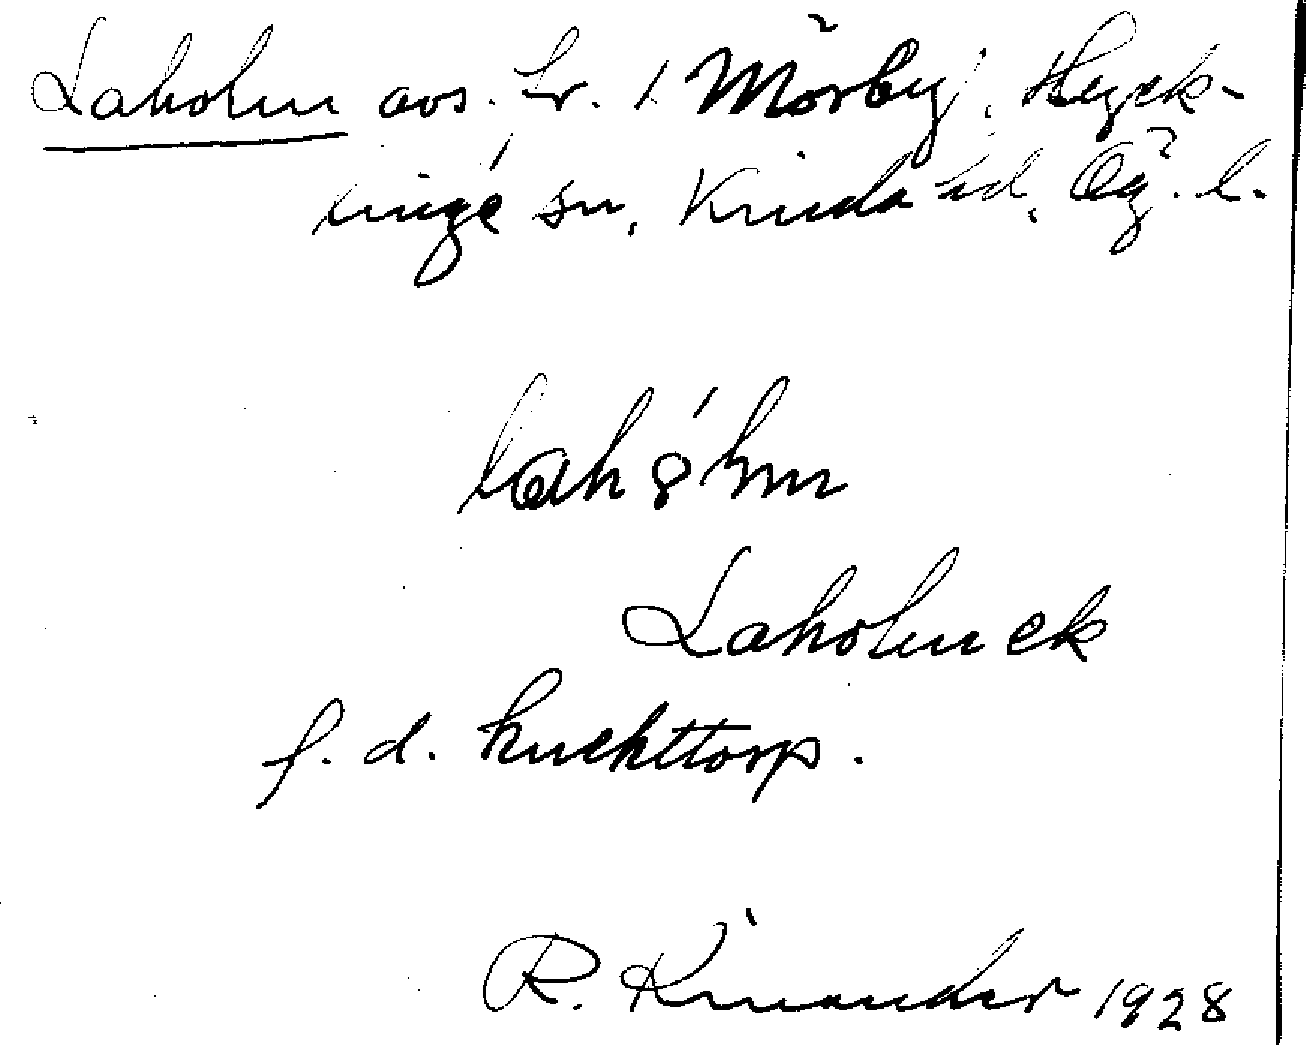 Laholm avs. fr. 1 Mörby, Hyck-
linge sn, Kinda hd, Ög. l.
Laholm ek
f. d. knekttorp.
R. Kinander 1928